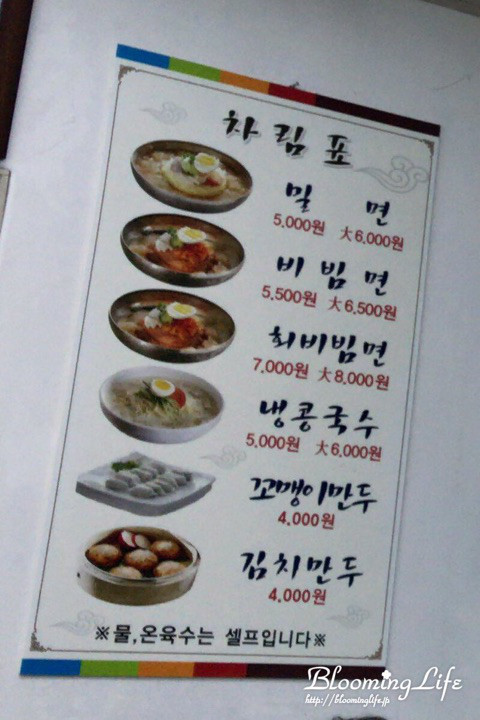 차림표
밀면
5.000원 大6.000원
비빔면
5.500원 大6.500원
회비빔면
7.000원 大8.000원
냉콩국수
5.000원 大6.000원
꼬맹이만두
4.000원
김치만두
4.000원
※물,온육수는 셀프입니다※
BloomingLife
http://bloominglife.jp